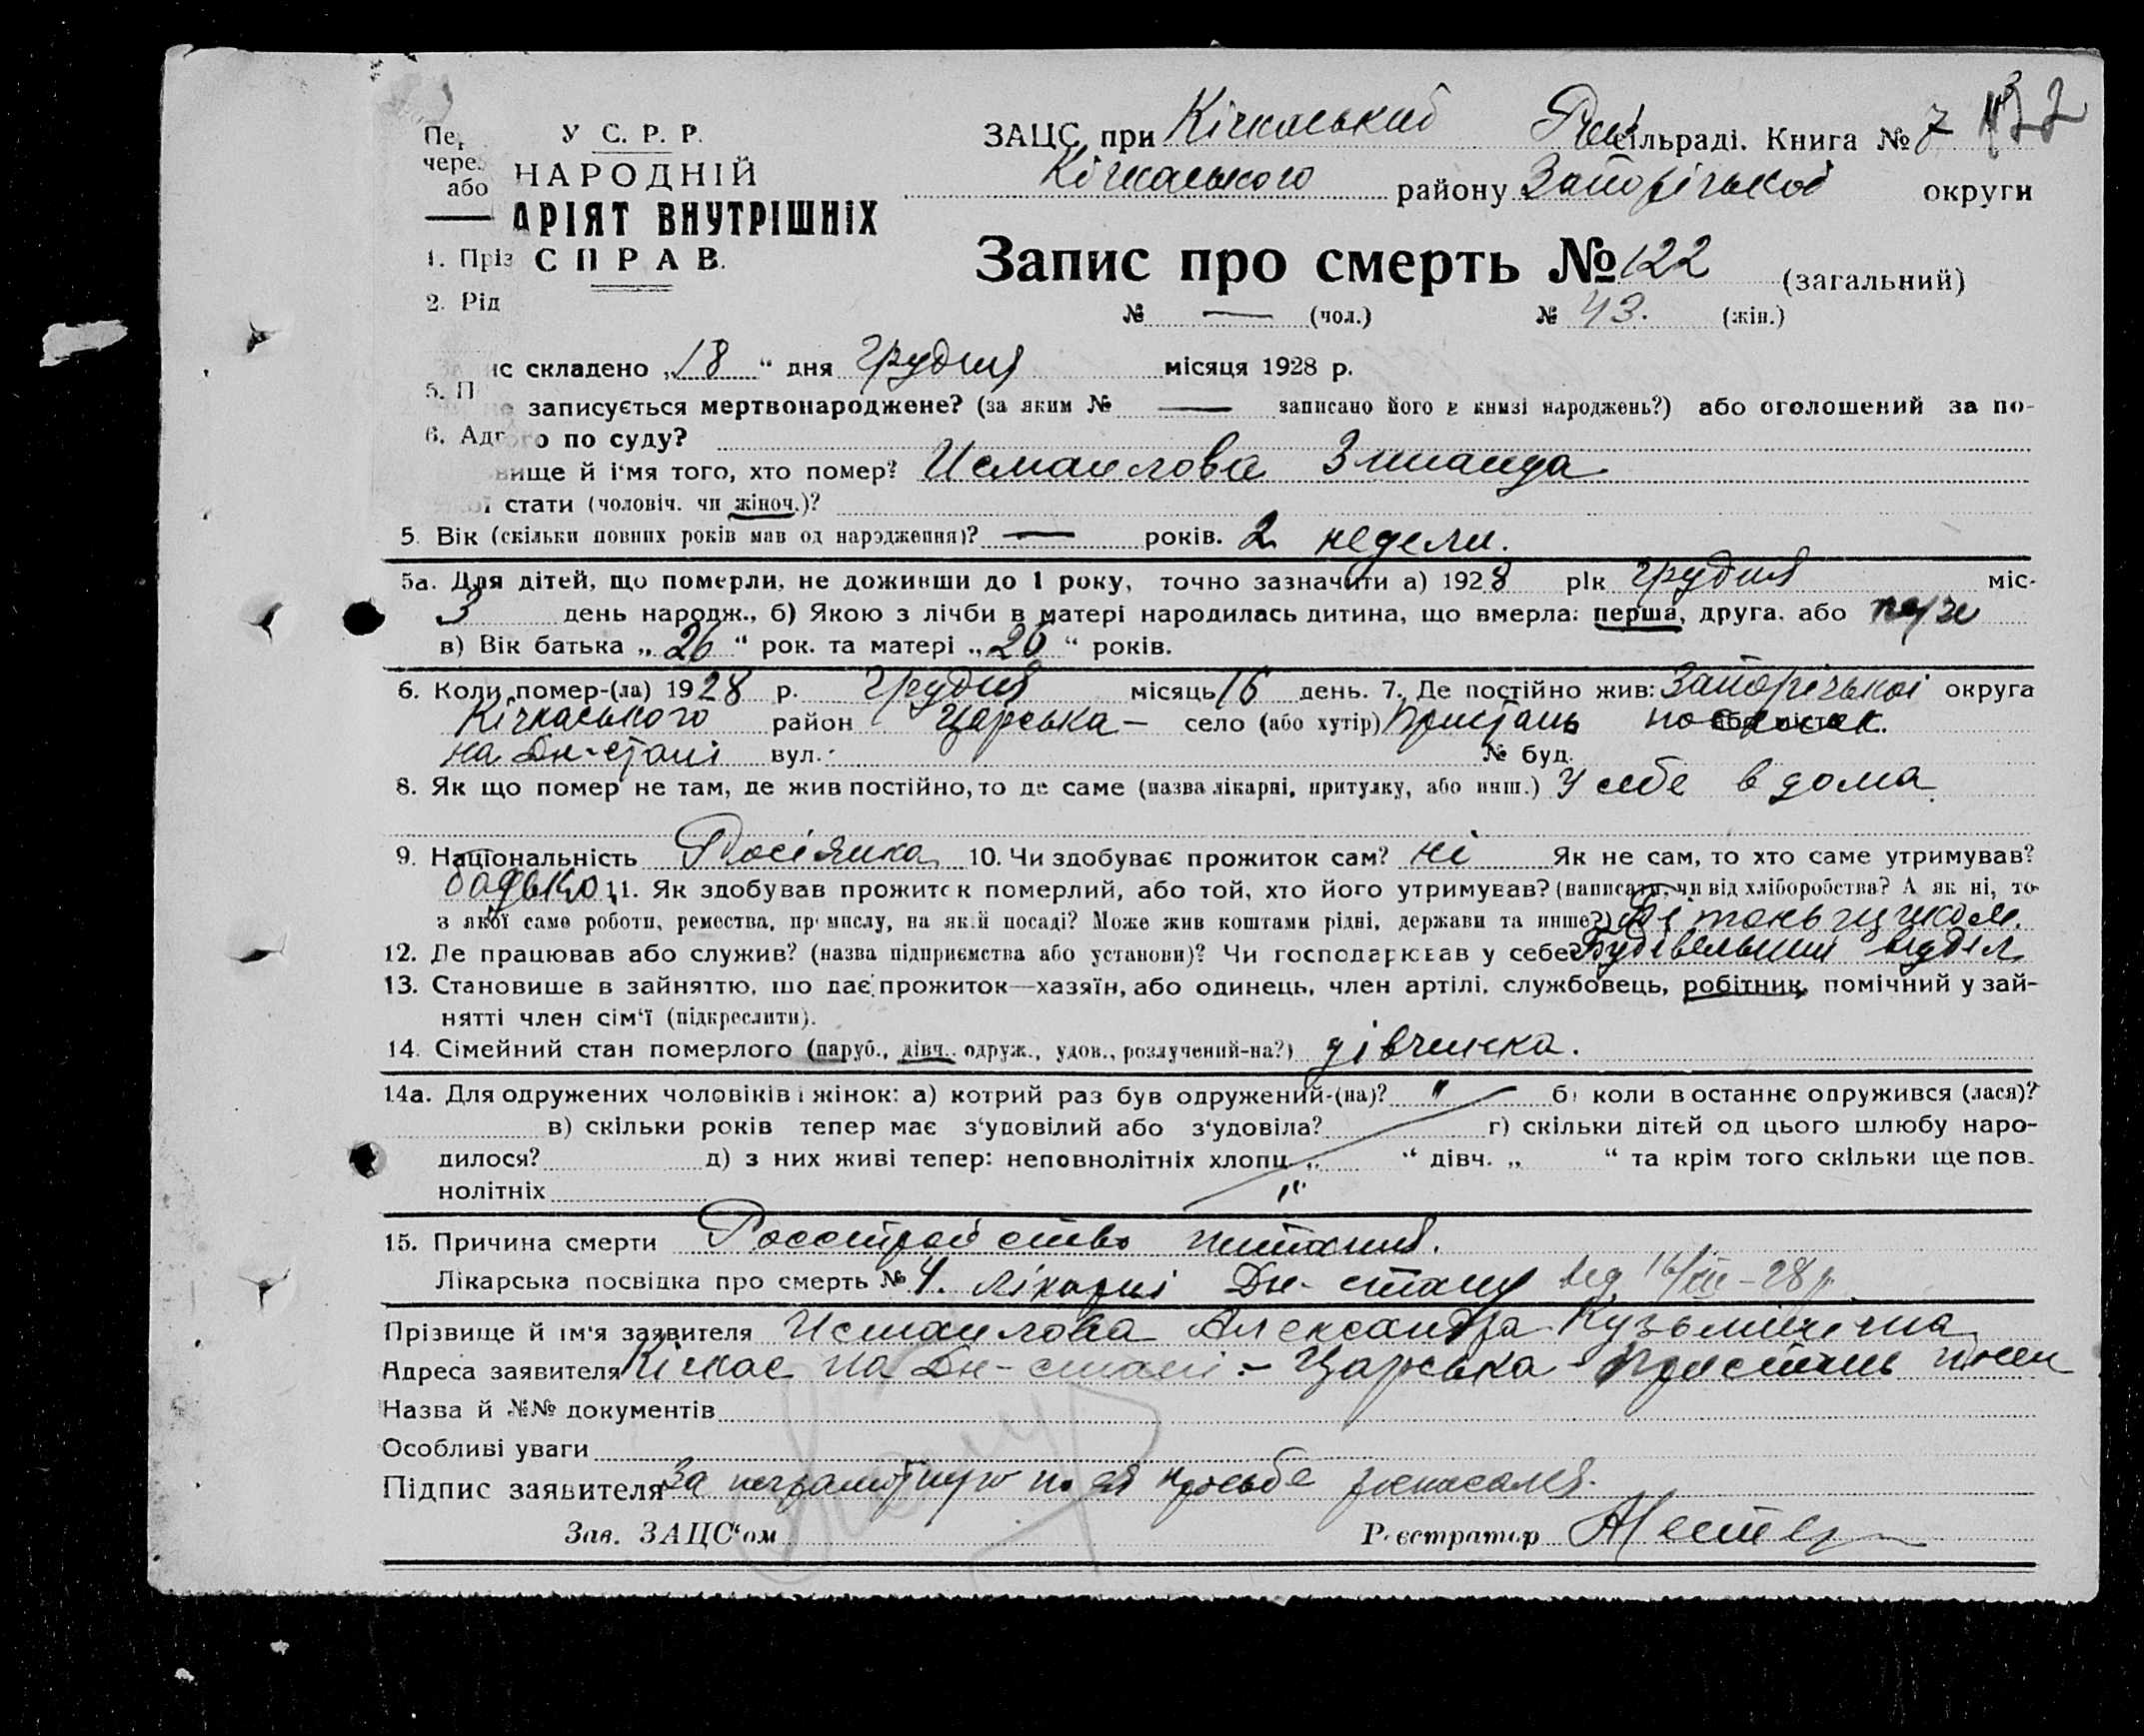 У С. Р. Р.
НАРОДНІЙ
АРІЯТ ВНУТРІШНІХ
СПРАВ.
Пер
через
або
1. Пріз
2. Рід
ЗАЦС при Кічкаський Рай сільраді. Книга № 7
Кічкаського району Запорізької округи
Запис про смерть № 122 (загальний)
№ — (чол.) № 43. (жін.)
ис складено „18“ дня Грудня місяця 1928 р.
5. П
записується мертвонароджене? (за яким № — записано його в книзі народжень?) або оголошений за по-
6. Адр о по суду?
вище й і'мя того, хто помер? Исмаилова Зинаида
ї стати (чоловіч. чи жіноч.)?
5. Вік (скільки повних років мав од народження)? — років. 2 недели.
5а. Для дітей, що померли, не доживши до 1 року, точно зазначити а) 1928 рік Грудня міс-
3 день народж., б) Якою з лічби в матері народилась дитина, що вмерла: перша, друга, або
в) Вік батька „26“ рок. та матері „20“ років.
6. Коли помер-(ла) 1928 р. Грудня місяць 16 день. 7. Де постійно жив: Запорізької округа
Кічкаського район Царська — село (або хутір) Пристань поселок.
на Дн-стані вул. № буд.
8. Як що помер не там, де жив постійно, то де саме (назва лікарні, притулку, або инш.) У себе в дома
9. Національність Росіянка 10. Чи здобуває прожиток сам? ні Як не сам, то хто саме утримував?
батько 11. Як здобував прожиток померлий, або той, хто його утримував? (написати, чи від хліборобства? А як ні, то-
з якої саме роботи, ремества, промислу, на якій посаді? Може жив коштами рідні, держави та инше?) Бітоньщиком.
12. Де працював або служив? (назва підприємства або установи)? Чи господарював у себе Будівельний відділ
13. Становище в зайняттю, що дає прожиток—хазяїн, або одинець, член артілі, службовець, робітник, помічний у зай-
нятті член сім'ї (підкреслити).
14. Сімейний стан померлого (паруб., дівч., одруж., удов., розлучений-на?) дівчинка.
14а. Для одружених чоловіків і жінок: а) котрий раз був одружений-(на)? " б) коли востаннє одружився (лася)?
в) скільки років тепер має з'удовілий або з'удовіла? г) скільки дітей од цього шлюбу наро-
дилося? д) з них живі тепер: неповнолітніх хлопц. „ “ дівч. „ “ та крім того скільки ще пов-
нолітніх "
15. Причина смерти Росстройство питания.
Лікарська посвідка про смерть № 4. лікарні Дн-стану від 16/XII-28 р.
Прізвище й ім'я заявителя Исмаилова Александра Кузьмінічна
Адреса заявителя Кічкас на Дн-стані - Царська Пристань посел
Назва й №№ документів
Особливі уваги
Підпис заявителя За неграмотную по её просьбе росписался.
Зав. ЗАЦС'ом Реєстратор